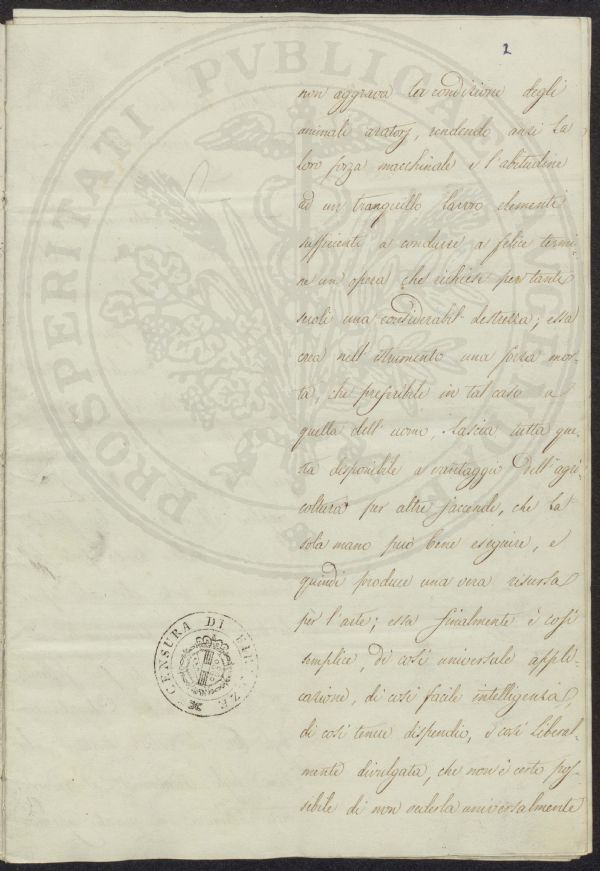 2
non aggrava la condizione degli
animali aratorj, rendendo anzi la
loro forza macchinale e l'abitudine
ad un tranquillo lavoro elementi
sufficienti a condurre a felice termi-
ne un opera che richiese per tanti
secoli una considerabil destrezza; essa
crea nell'istrumento una forza mor-
ta, che preferibile in tal caso a
quella dell'uomo, lascia tutta que-
sta disponibile a vantaggio dell'agri-
coltura per altre faccende, che la
sola mano può bene eseguire, e
quindi produce una vera risorsa
per l'arte; essa finalmente è così
semplice, di così universale appli-
cazione, di così facile intelligenza,
di così tenue dispendio, e così liberal-
mente divulgata, che non è certo pos-
sibile di non vederla universalmente
CENSURA DI FIRENZE
PROSPERITATI PVBLICAE AVGENDAE